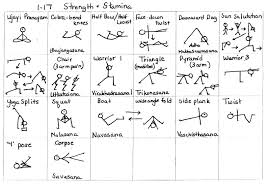 1-17 Strength + Stamina
Ujayi Pranayam
Cobra-bend knees
Bhujangasana
Half Bow/
Face down twist
Downward Dog
Adho
Sun Salutation
Chair (3 arm pos)
Utkatasana
Warrior 1
Virabhadrasana 1
Triangle
Trikonasana
Pyramid (3 arm)
Warrior 3
Yoga Splits
Squat
Malasana
Boat
Navasana
wide angle fold
side plank
Vasisthasana
Twist
"4" pose
Corpse
Savasana